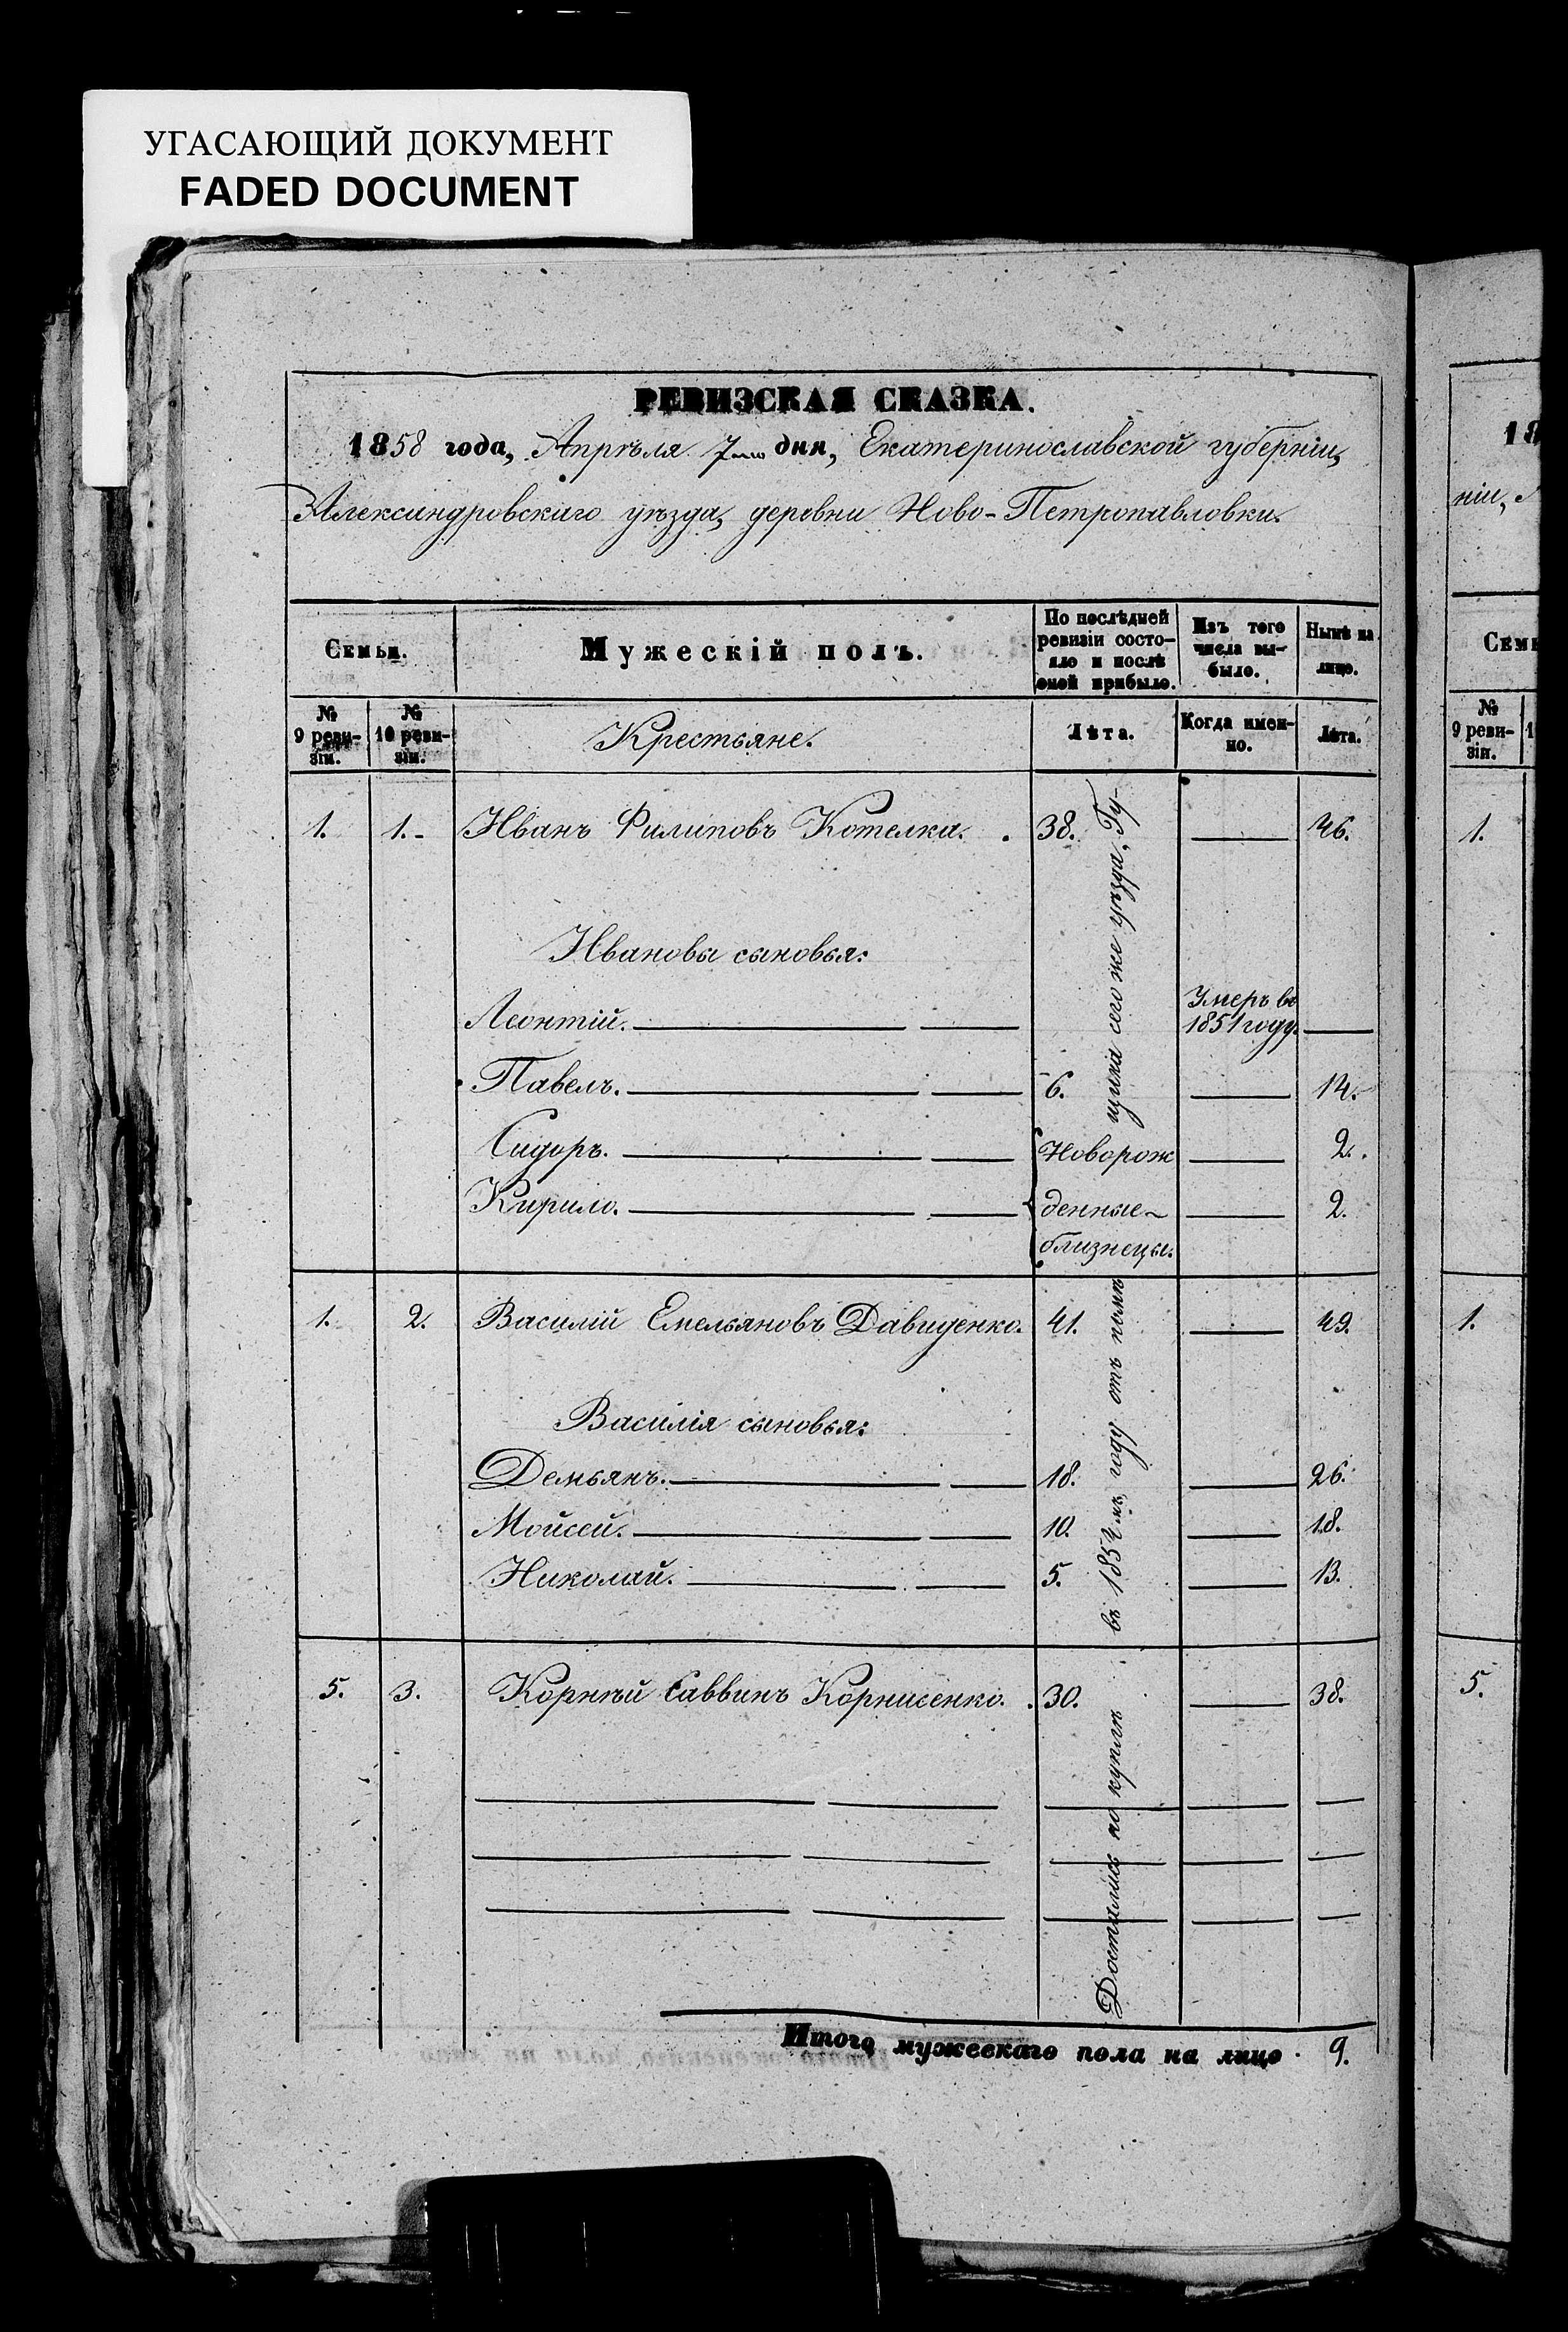 УГАСАЮЩИЙ ДОКУМЕНТ
FADED DOCUMENT
РЕВИЗСКАЯ СКАЗКА.
1858 года, Апрѣля 7го дня, Екатеринославской губерніи,
Александровскаго уѣзда, деревни Ново-Петропавловки.
Семьи. Мужескій полъ. По послѣдней ревизіи состояло и послѣ оной прибыло. Изъ того числа выбыло. Нынѣ на лицо.
№ 9 реви-зіи. № 10 реви-зіи. Крестьяне. Лѣта. Когда имен-но. Лѣта.
1. 1. Иванъ Филиповъ Котелка. 38. — 46.
Ивановы сыновья:
Леонтій. — Умеръ въ 1851 году. —
Павелъ. — 6. — 14.
Сидоръ. — Новорож — 2.
Кирило. — денные — 2.
близнецы.
1. 2. Василій Емельяновъ Давиденко. 41. — 49.
Василія сыновья:
Демьянъ. — 18. — 26.
Мойсей. — 10. — 18.
Николай. — 5. — 13.
5. 3. Корнѣй Саввинъ Корниенко. 30. — 38.
Достались по куплѣ
въ 1852мъ году отъ помѣ
щика сего же уѣзда, Гу-
Итого мужескаго пола на лицо 9.
18
ніи,
Семь
№
9 реви-
зіи.
1.
1.
5.